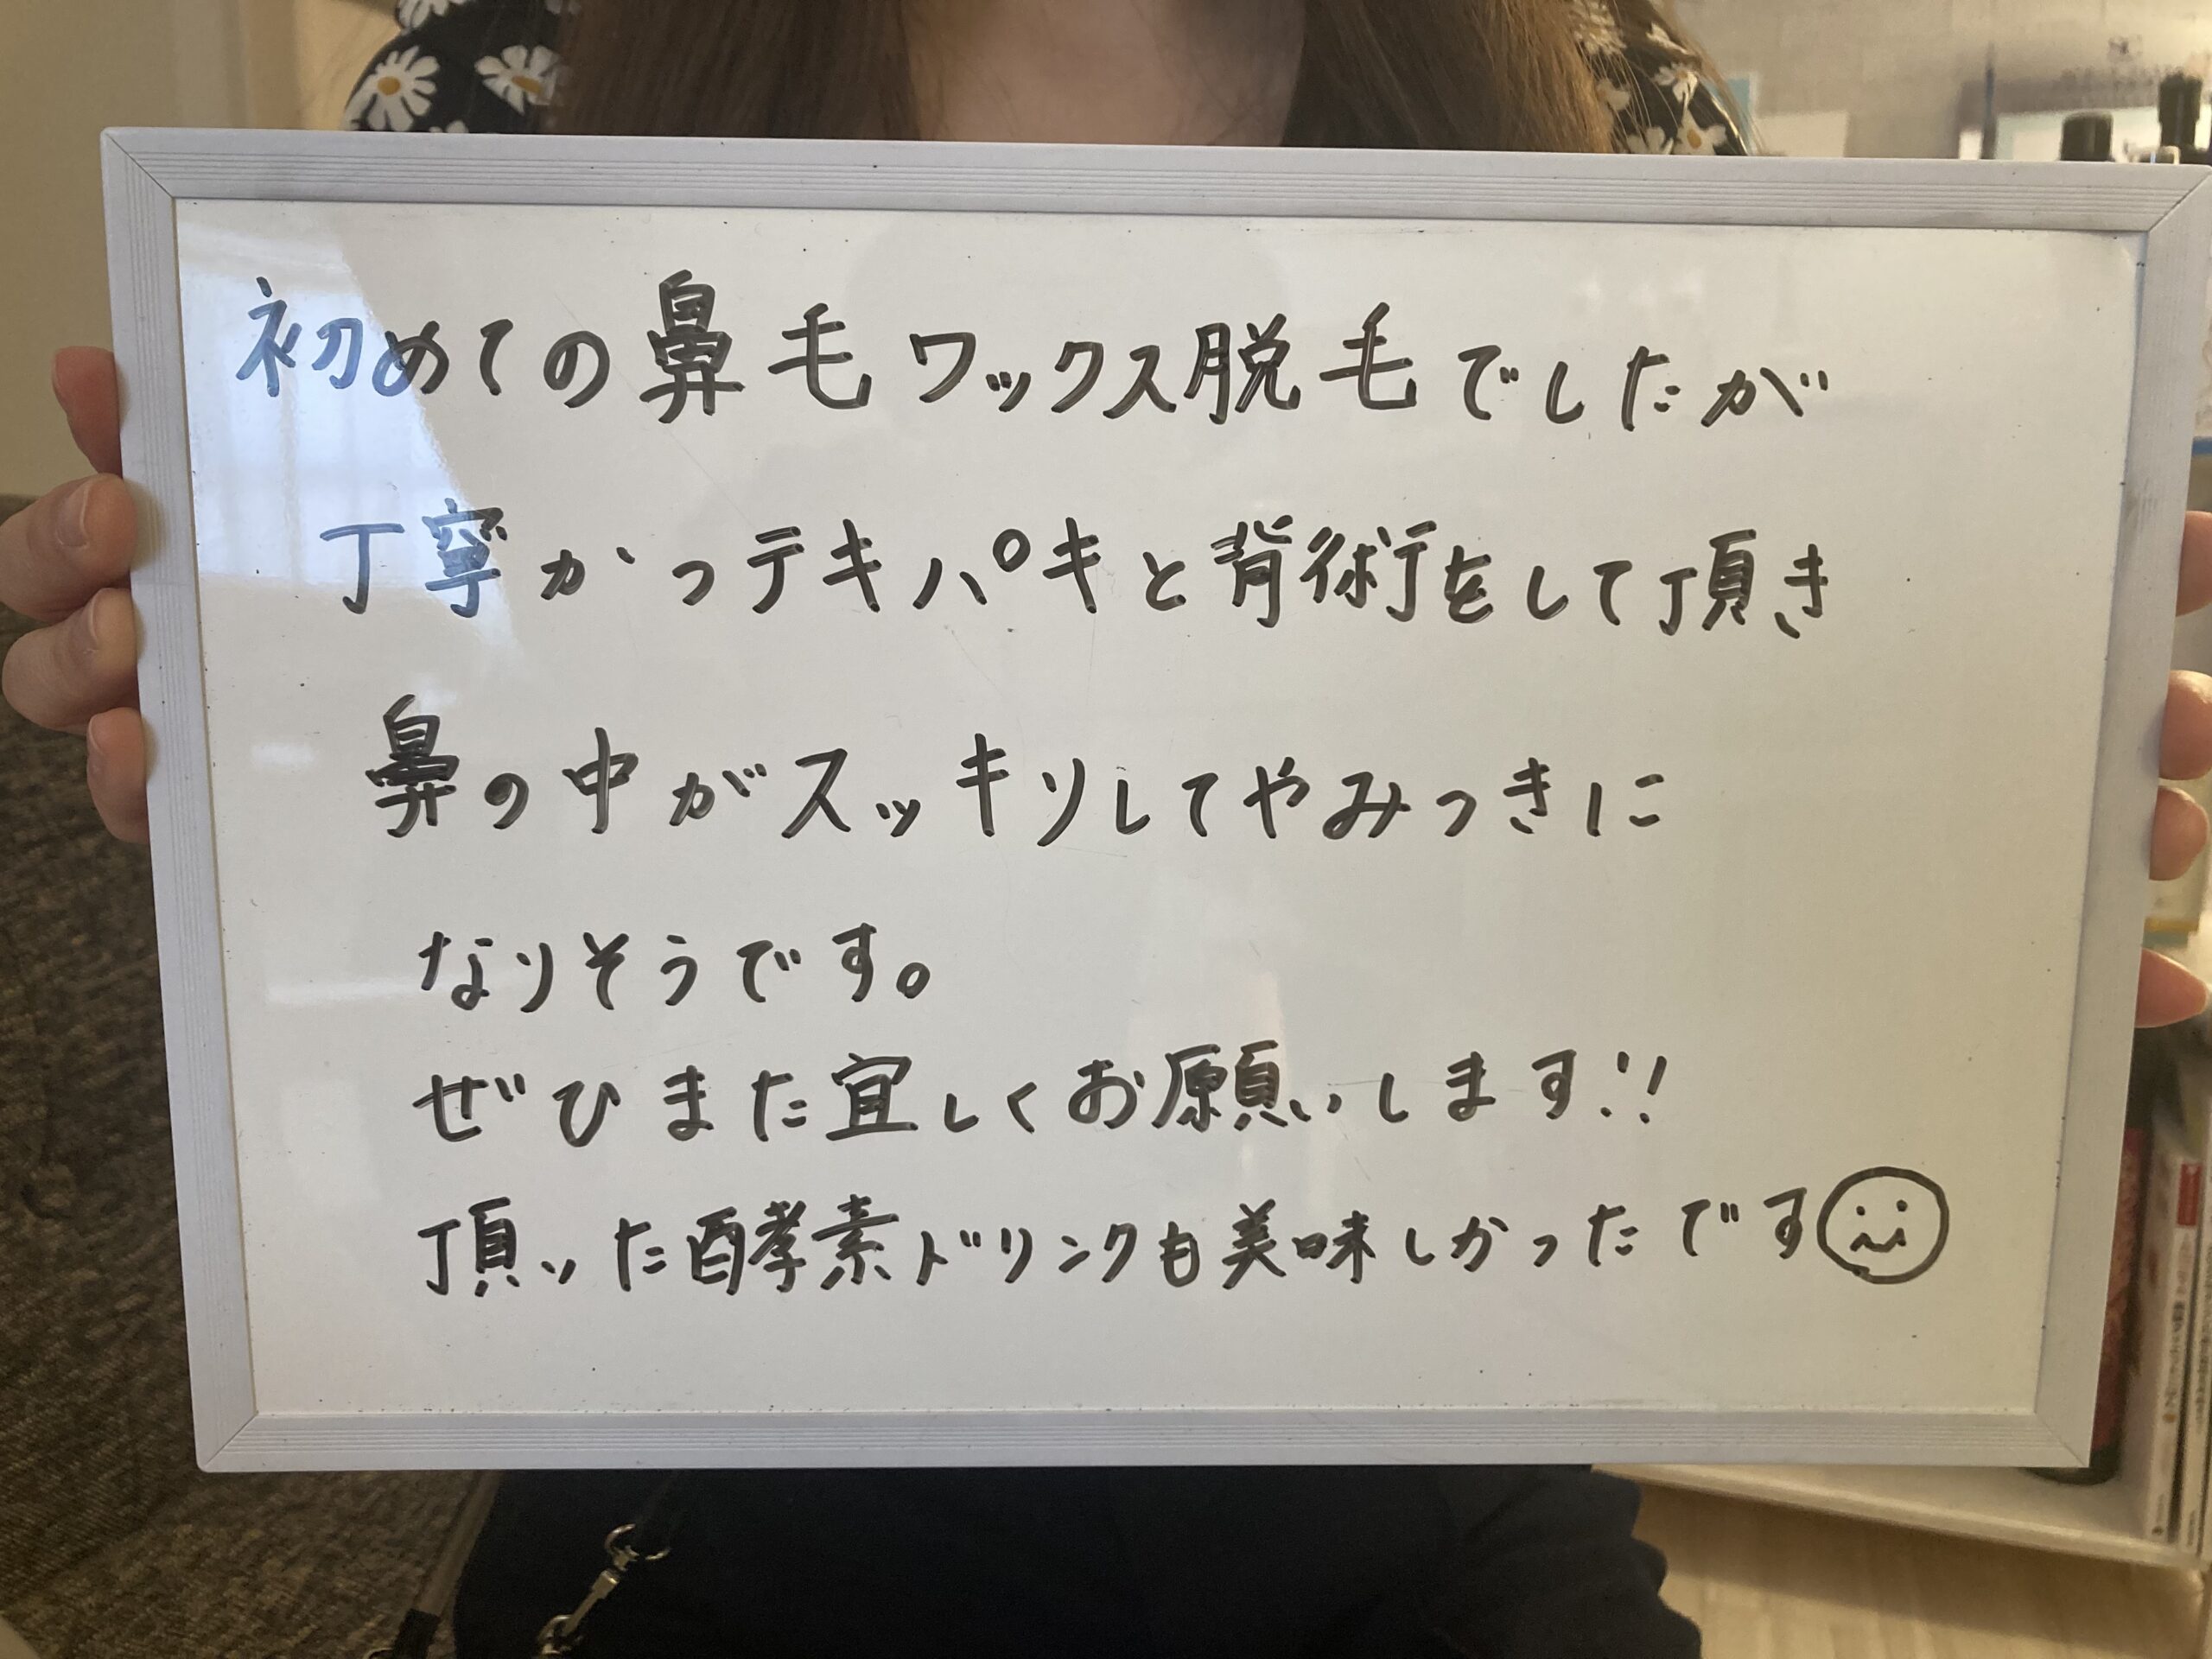 初めての鼻毛ワックス脱毛でしたが
丁寧かつテキパキと背術をして頂き
鼻の中がスッキリしてやみつきに
なりそうです。
ぜひまた宜しくお願いします!!
頂いた酵素ドリンクも美味しかったです